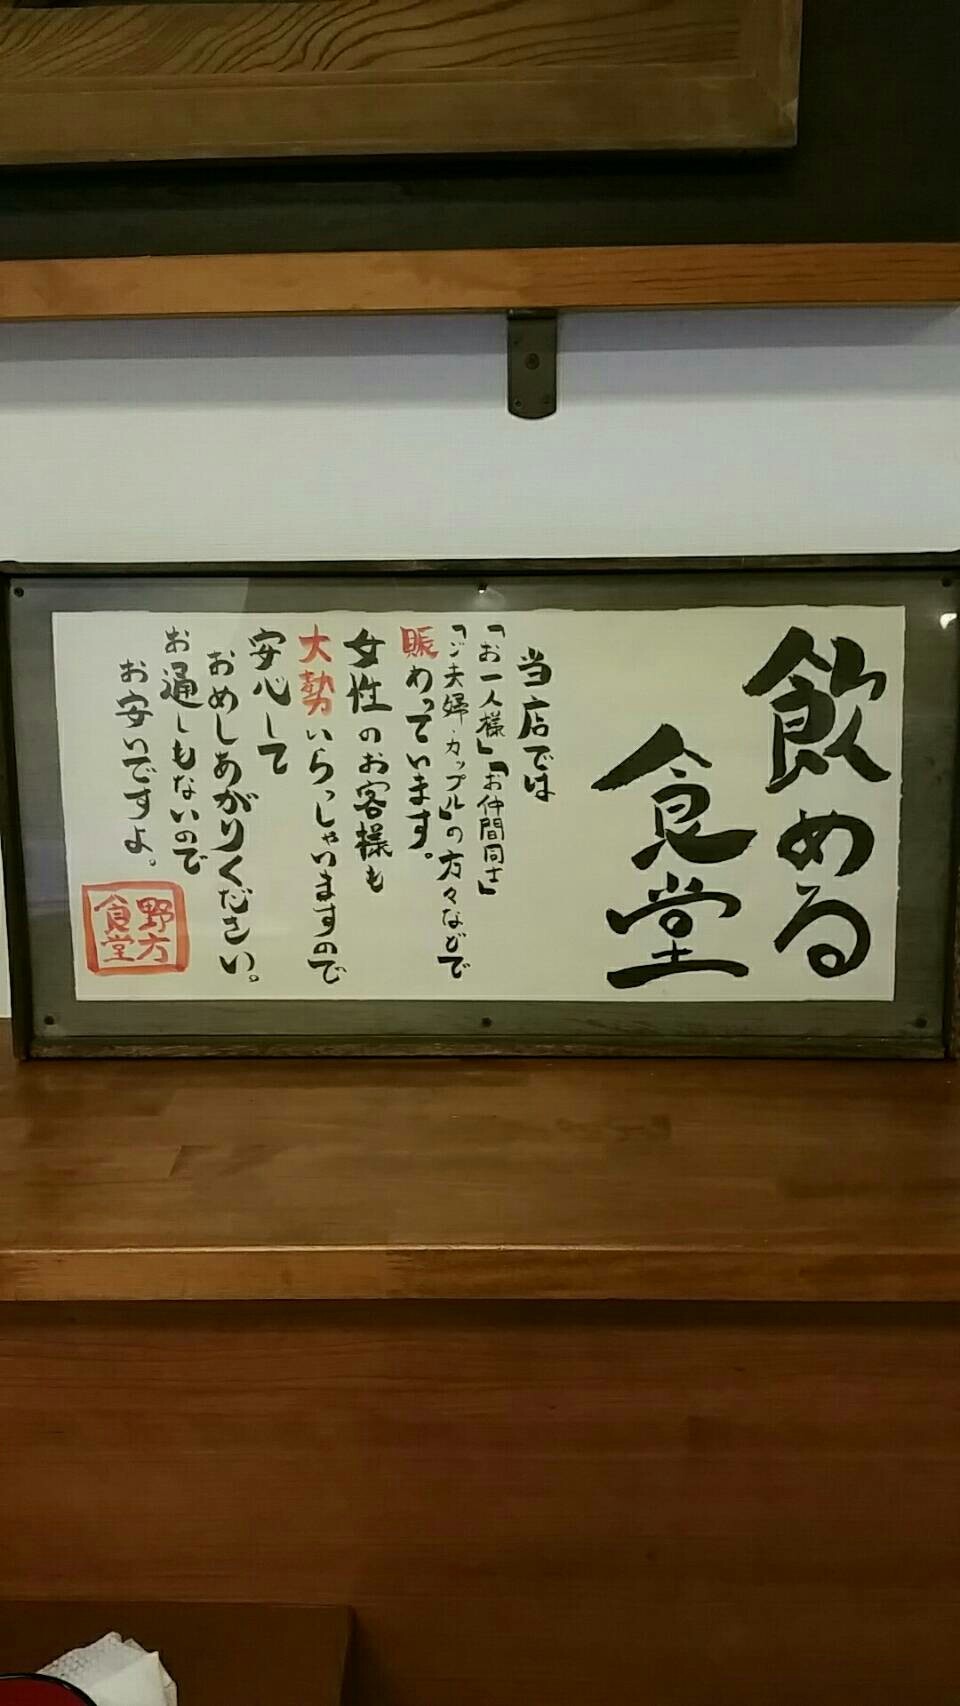 飲める
食堂
当店では
「お一人様」「お仲間同士」
「ご夫婦・カップル」の方々などで
賑わっています。
女性のお客様も
大勢いらっしゃいますので
安心して
おめしあがりください。
お通しもないので
お安いですよ。
野方
食堂